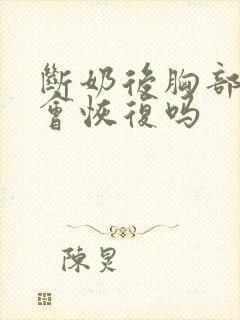 斷奶後胸部
會恢復嗎
陳炅